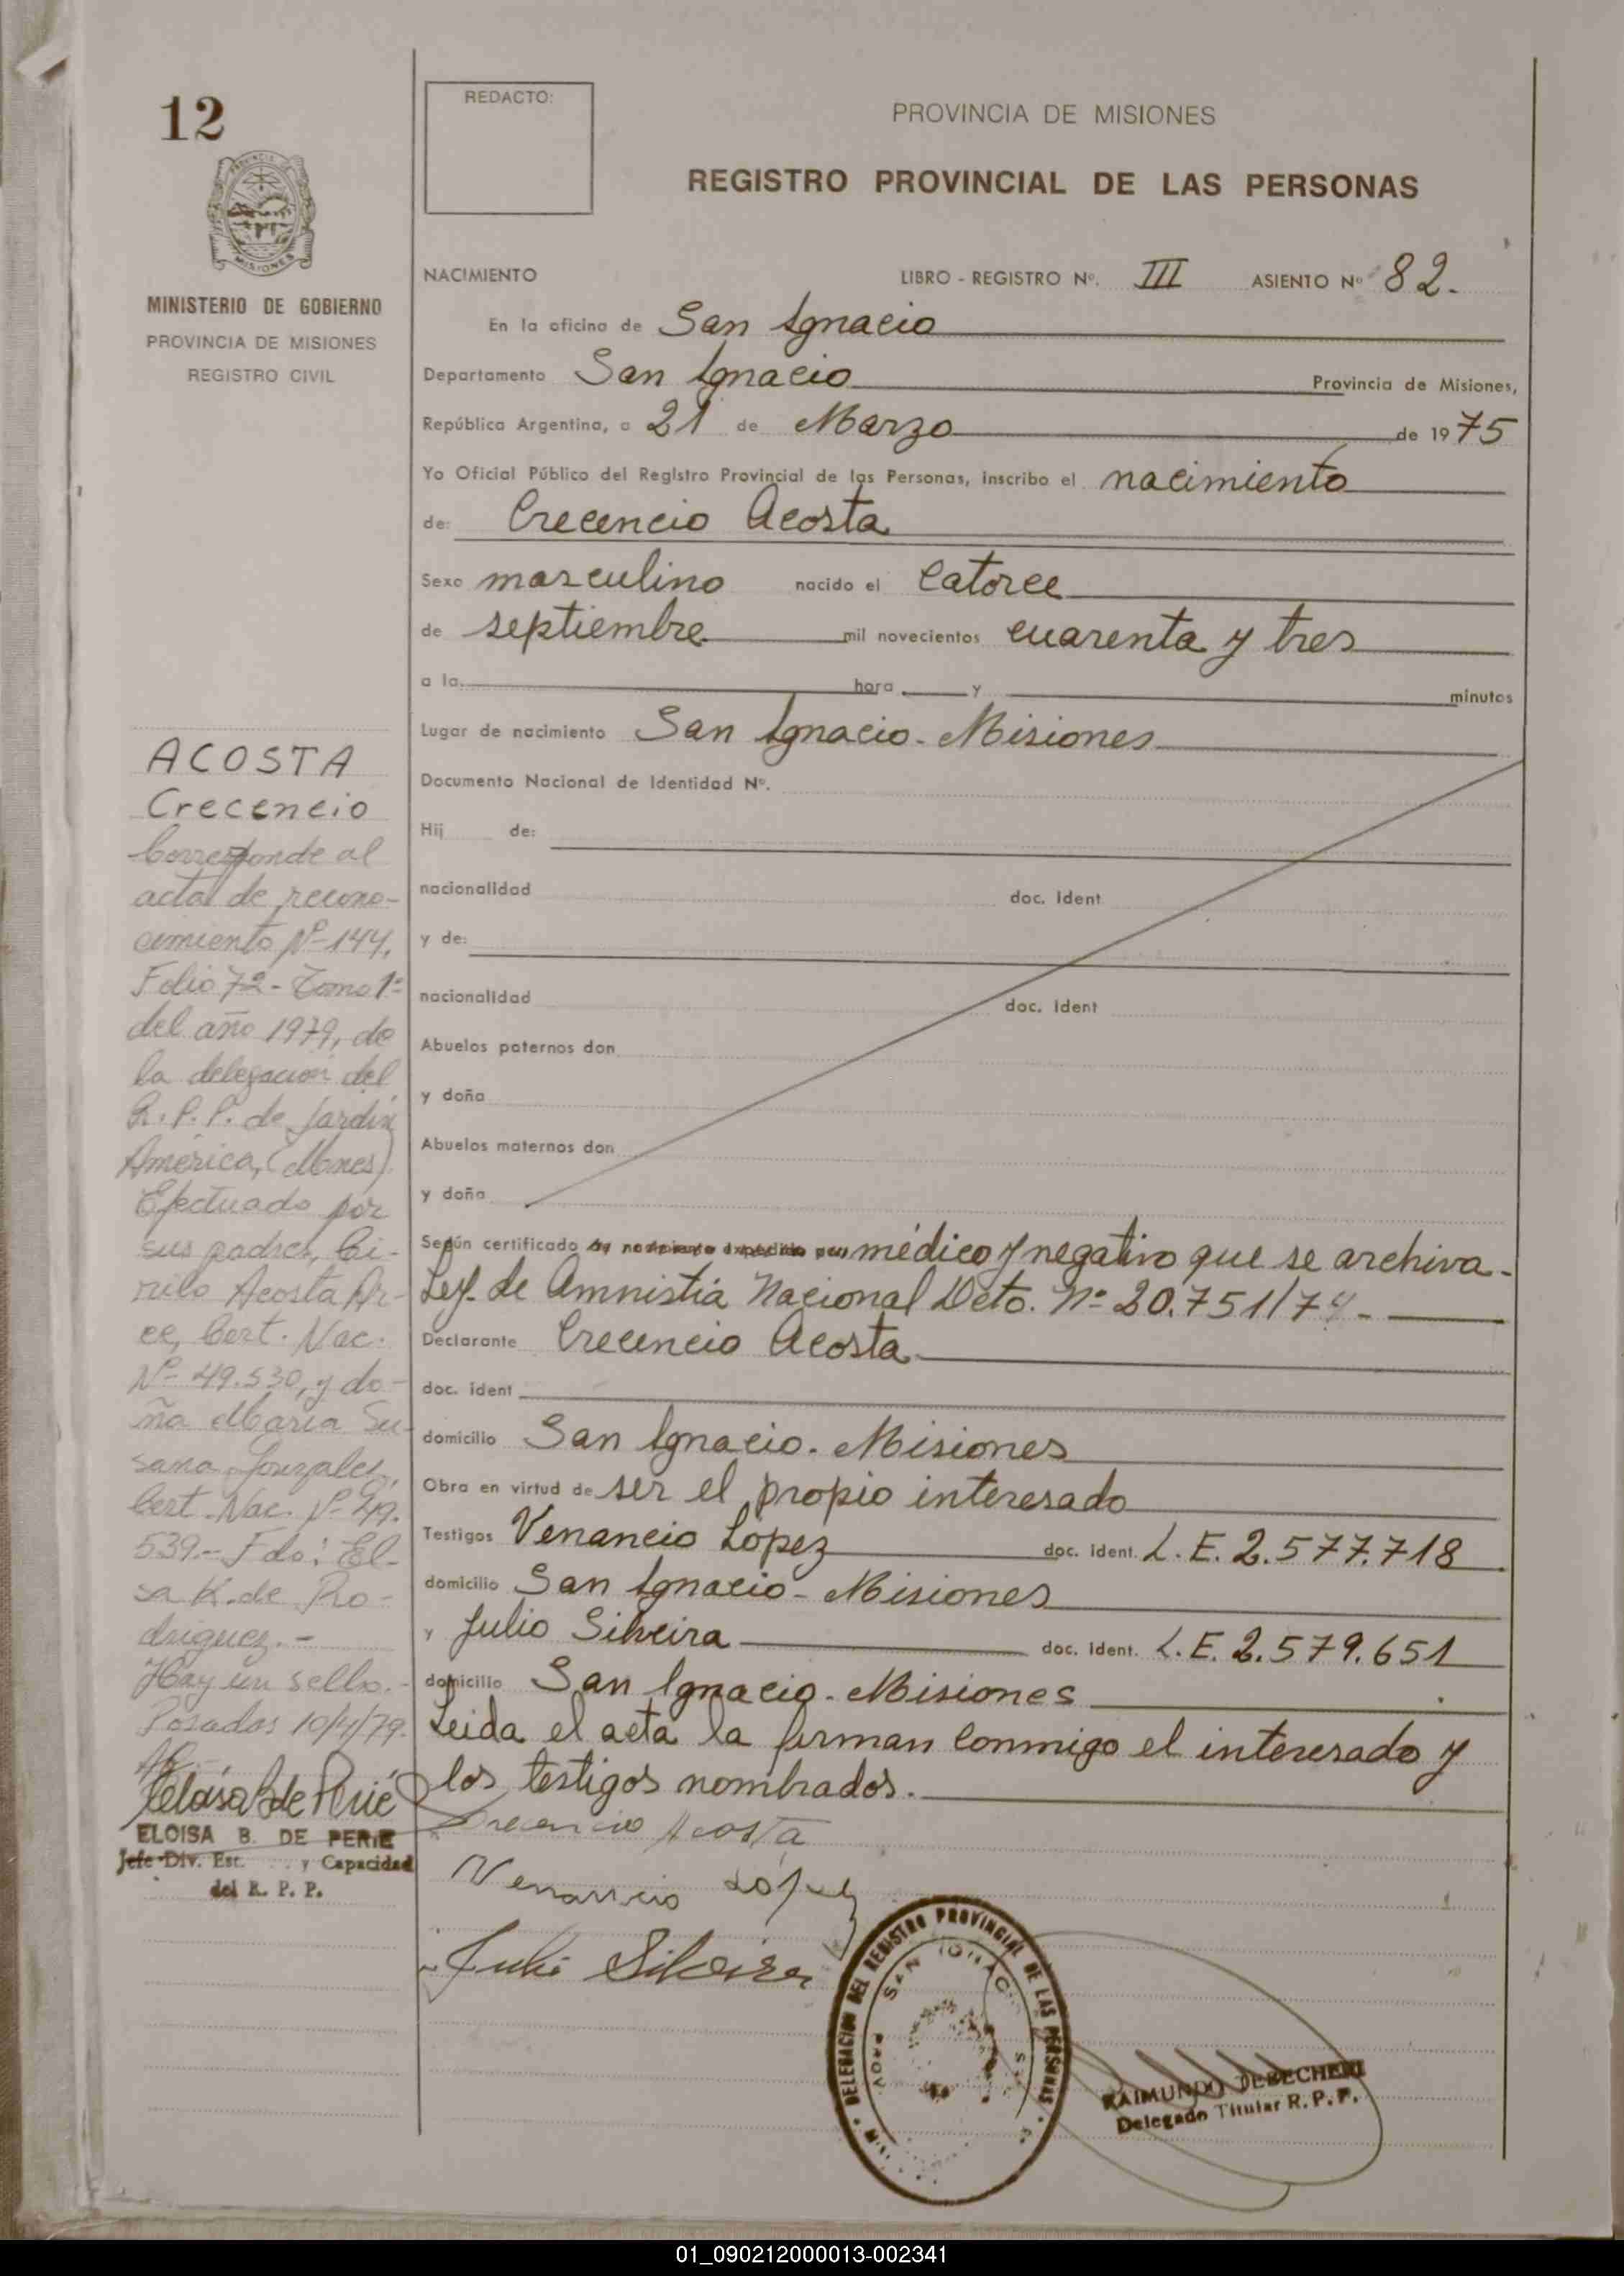 12
MINISTERIO DE GOBIERNO
PROVINCIA DE MISIONES
REGISTRO CIVIL
REDACTO:
PROVINCIA DE MISIONES
REGISTRO PROVINCIAL DE LAS PERSONAS
NACIMIENTO LIBRO - REGISTRO Nº. III ASIENTO Nº 82.
En la oficina de San Ignacio
Departamento San Ignacio Provincia de Misiones,
República Argentina, a 21 de Marzo de 1975
Yo Oficial Público del Registro Provincial de las Personas, inscribo el nacimiento
de: Crecencio Acosta
Sexo masculino nacido el catorce
de septiembre mil novecientos cuarenta y tres
a la hora y minutos
Lugar de nacimiento San Ignacio - Misiones
Documento Nacional de Identidad Nº.
Hij de:
nacionalidad doc. Ident
y de:
nacionalidad doc. Ident
Abuelos paternos don
y doña
Abuelos maternos don
y doña
Según certificado médico y negativo que se archiva -
Ley. de Amnistia Nacional Dcto. Nº 20.751/74 -
Declarante Crecencio Acosta
doc. ident
domicilio San Ignacio - Misiones
Obra en virtud de ser el propio interesado
Testigos Venancio Lopez doc. ident. L. E. 2.577.718
domicilio San Ignacio - Misiones
y Julio Silveira doc. Ident. L. E. 2.579.651
domicilio San Ignacio - Misiones
Leida el acta la firman conmigo el interesado y
los testigos nombrados.
Crecencio Acosta
Venancio López
Julio Silveira
DELEGACION DEL REGISTRO PROVINCIAL DE LAS PERSONAS
SAN IGNACIO
PROV.
RAIMUNDO
Delegado Titular R. P. P.
ACOSTA
Crecencio
Corresponde al
acta de recono-
cimiento Nº 144,
Folio 72 - Tomo 1º
del año 1979, de
la delegación del
R. P. P. de Jardín
América, (Mnes).
Efectuado por
sus padres, Ci-
rilo Acosta Ar-
ce, Cert. Nac.
Nº 49.530, y do-
ña María Su-
sana Gonzales,
Cert. Nac. Nº 49.
539.- Fdo: El-
sa K. de Ro-
driguez. -
Hay un sello. -
Posadas 10/4/79.
ELOISA B. DE PERIE
Jefe Div. Est. y Capacidad
del R. P. P.
01_090212000013-002341